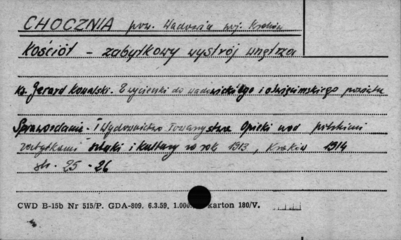 CHOCZNIA pow. Wadowice woj. Kraków
Kościół - zabytkowy wystrój wnętrza
Ks. Gerard Kowalski. Z wycieczki do wadowickiego i oświęcimskiego powiatu
Sprawozdanie i Wydawnictwo Towarzystwa Opieki nad polskimi
zabytkami sztuki i kultury za rok 1913, Kraków 1914
str. 25 - 26
CWD B-15b Nr 515/P. GDA-809. 6.3.59, 1.000. karton 180/V.